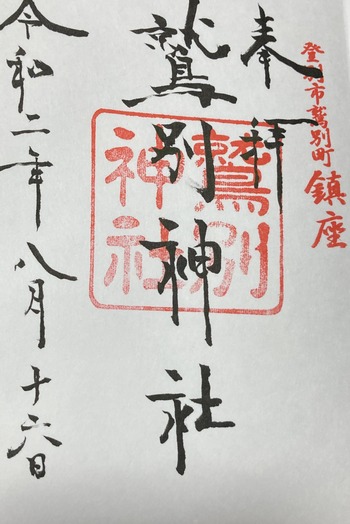 登別市鷲別町 鎮座
奉拝
鷲別神社
鷲別
神社
令和二年八月十六日